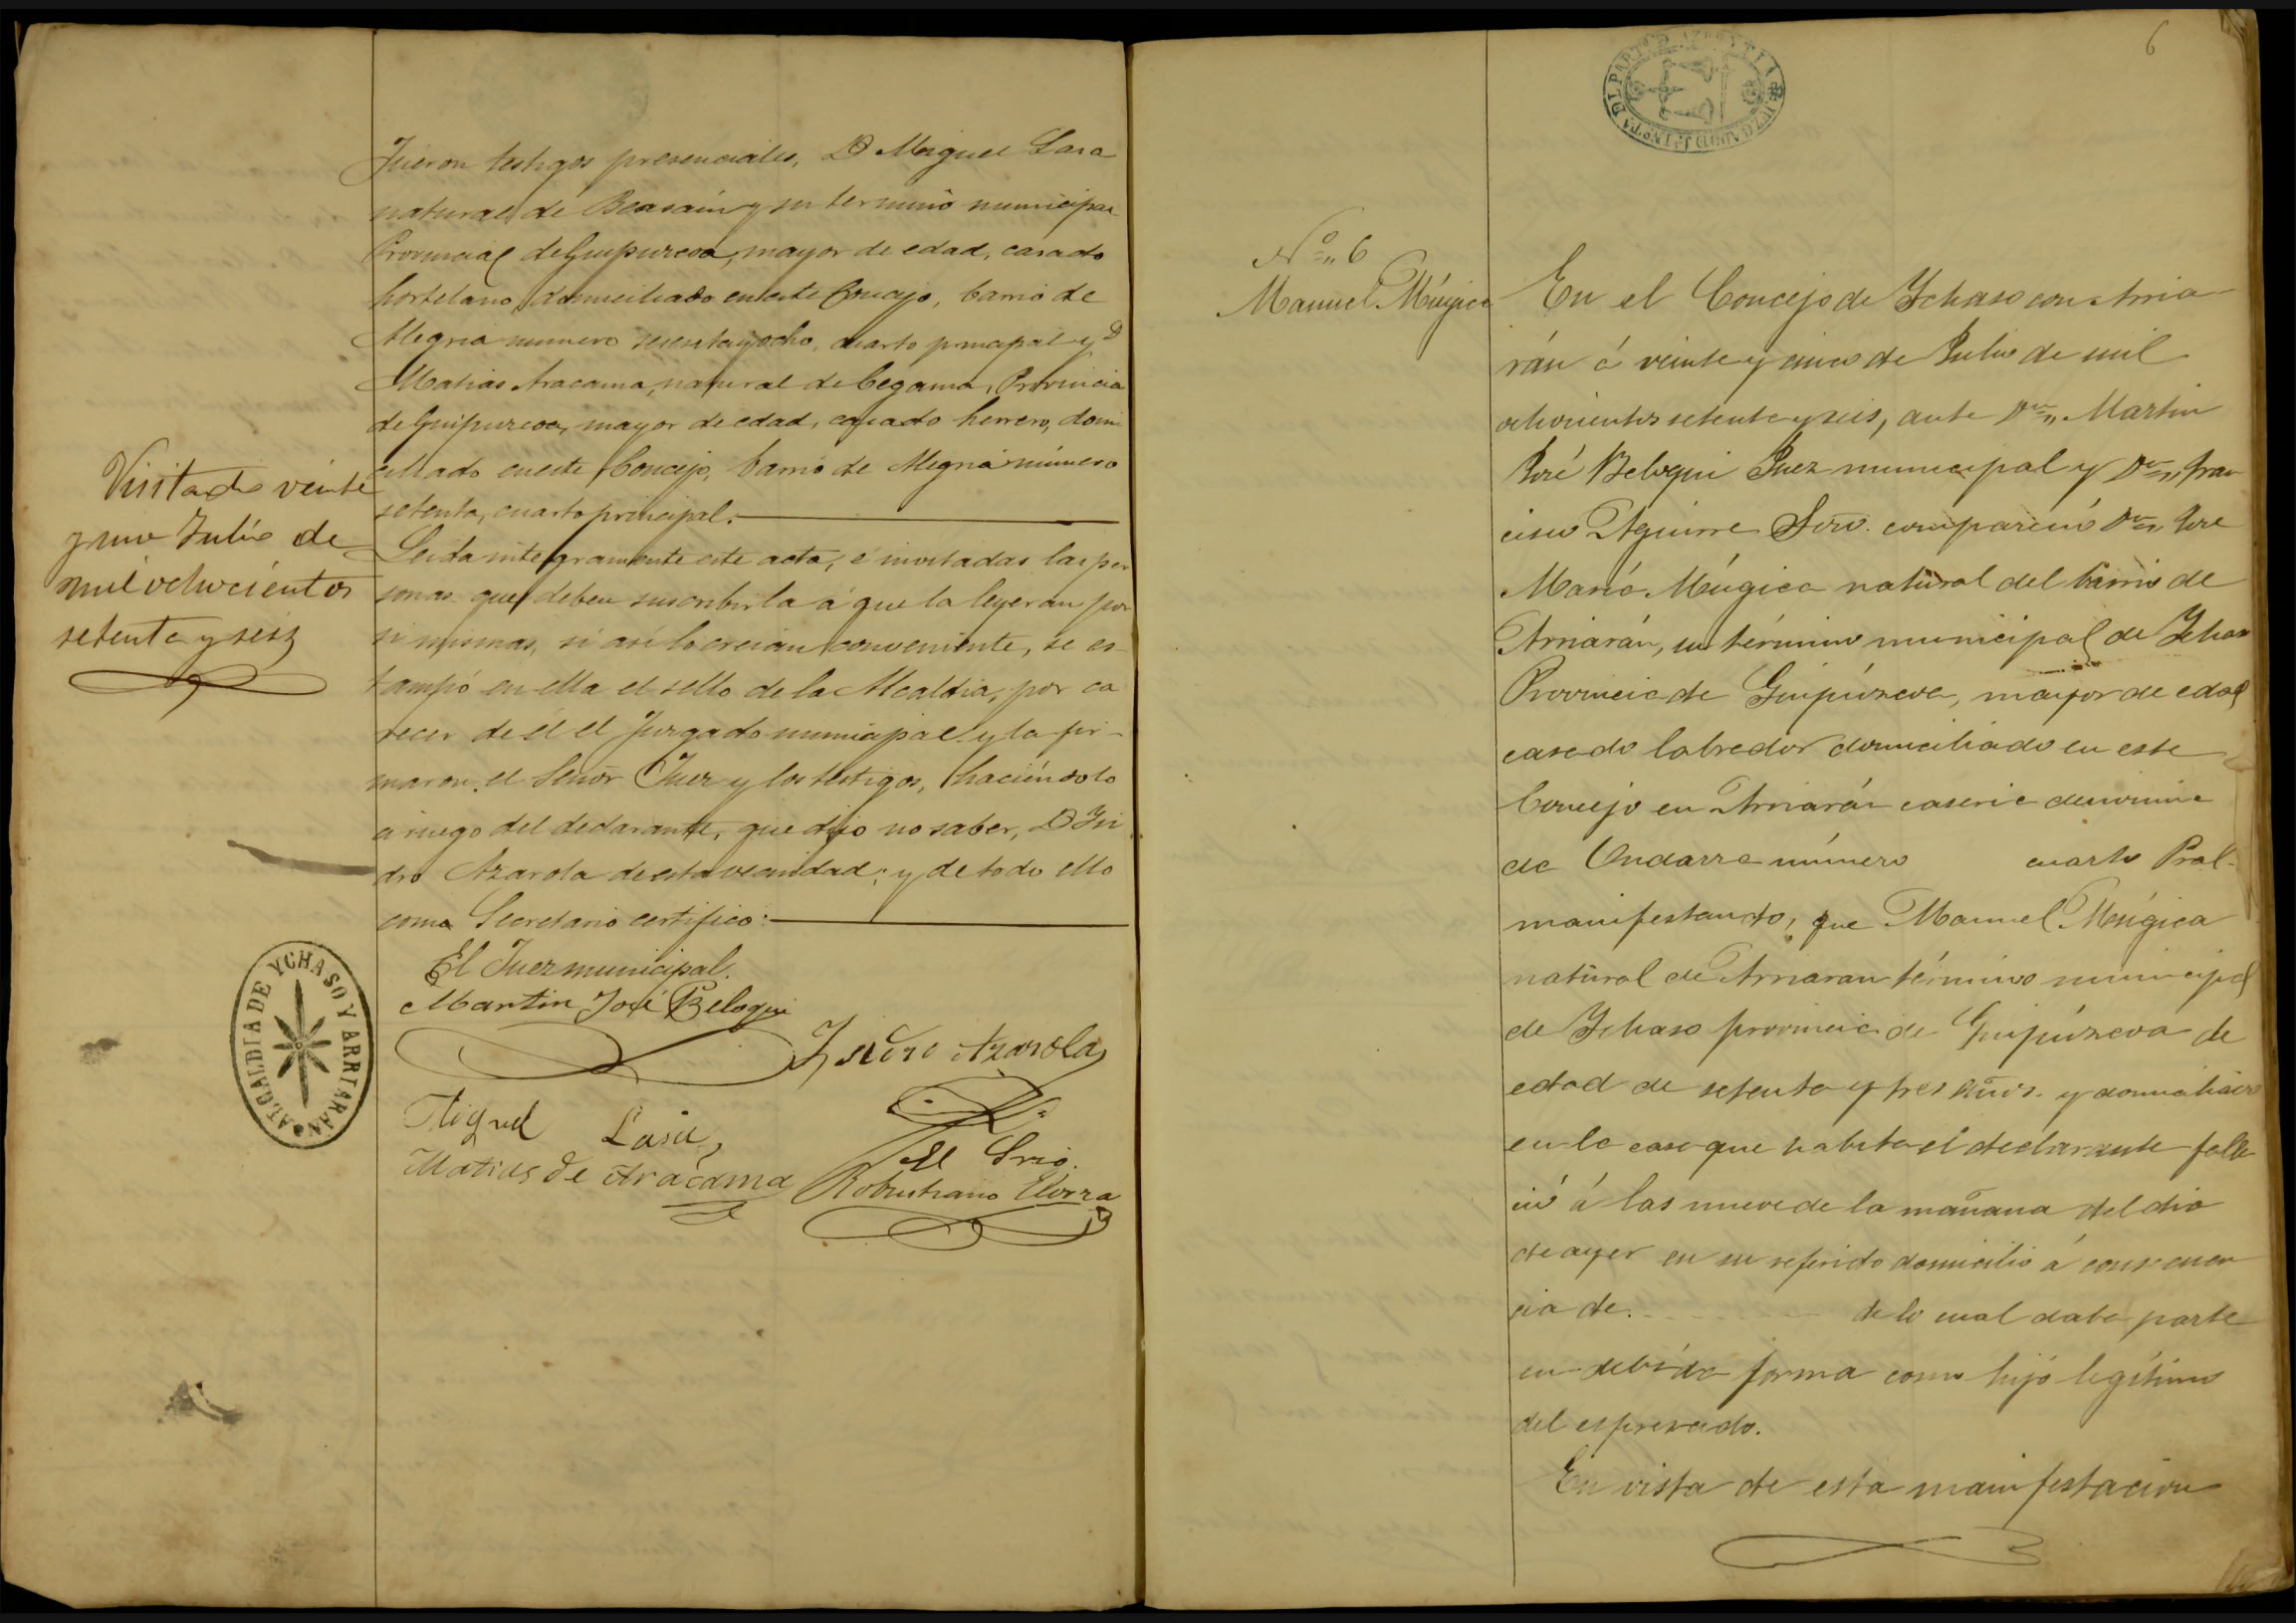 Fueron testigos presenciales, D Miguel Lasa
natural de Beasain y su termino municipal
Provincia de Guipuzcoa, mayor de edad, casado
hortelano, domiciliado en este Concejo, barrio de
Alegria numero sesenta y ocho, cuarto principal y D
Matias Aracama, natural de Cegama, Provincia
de Guipuzcoa, mayor de edad, casado herrero, domi
ciliado en este Concejo, barrio de Alegria número
setenta, cuarto principal.
Leida integramente este acta, é invitadas las per
sonas que deben suscribirla á que la leyeran por
si mismas, si asi lo creian conveniente, se es-
tampó en ella el sello de la Alcaldia, por ca
recer de él el Juzgado municipal y la fir-
maron el Señor Juez y los testigos, haciéndolo
a ruego del declarante, que dijo no saber, D Ysi
dro Azarola de esta vecindad; y de todo ello
como Secretario certifico:
El Juez municipal.
Martin José Beloqui
Ysidro Azarola
Miguel Lasa
Matias de Aracama
El Srio.
Robustiano Elorza
Visitado veinte
y uno Julio de
mil ochocientos
setenta y seis
ALCALDIA DE YCHASO Y ARRIARAN
6
Nº 6
Manuel Múgica
En el Concejo de Ychaso con Arria
rán á veinte y cinco de Julio de mil
ochocientos setenta y seis, ante Dn Martin
José Beloqui Juez municipal y Dn Fran
cisco Aguirre Srio. compareció Dn José
María Múgica natural del barrio de
Arriarán, su término municipal de Ychaso
Provincia de Guipúzcoa, mayor de edad
casado labrador domiciliado en este
Concejo en Arriarán caseria denomina
da Ondarra número cuarto Pral.
manifestando, que Manuel Múgica
natural de Arriaran término municipal
de Ychaso provincia de Guipúzcoa de
edad de setenta y tres años y domiciliado
en la casa que habita el declarante falle
ció á las nueve de la mañana del dia
de ayer en su referido domicilio á consecuen
cia de. de lo cual daba parte
en debida forma como hijo legítimo
del espresado.
En vista de esta manifestacion